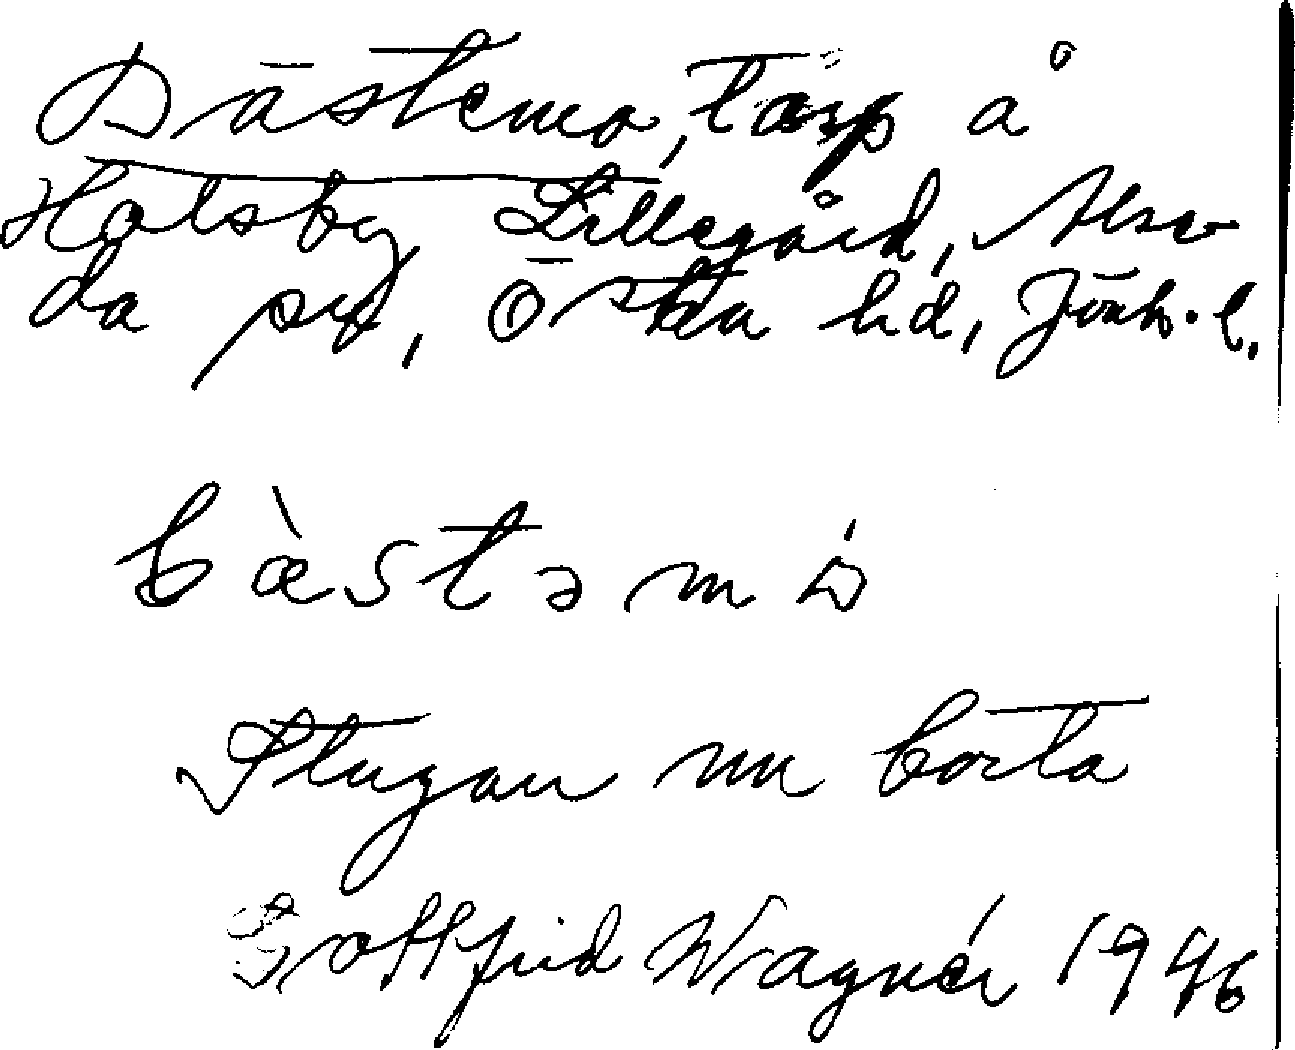 Bästemo, torp å
Holsby Lillegård, Alse-
da sn, Östra hd, Jönk. l.
bæ̀stəmó
Stugan nu borta
Gottfrid Wagnér 1946